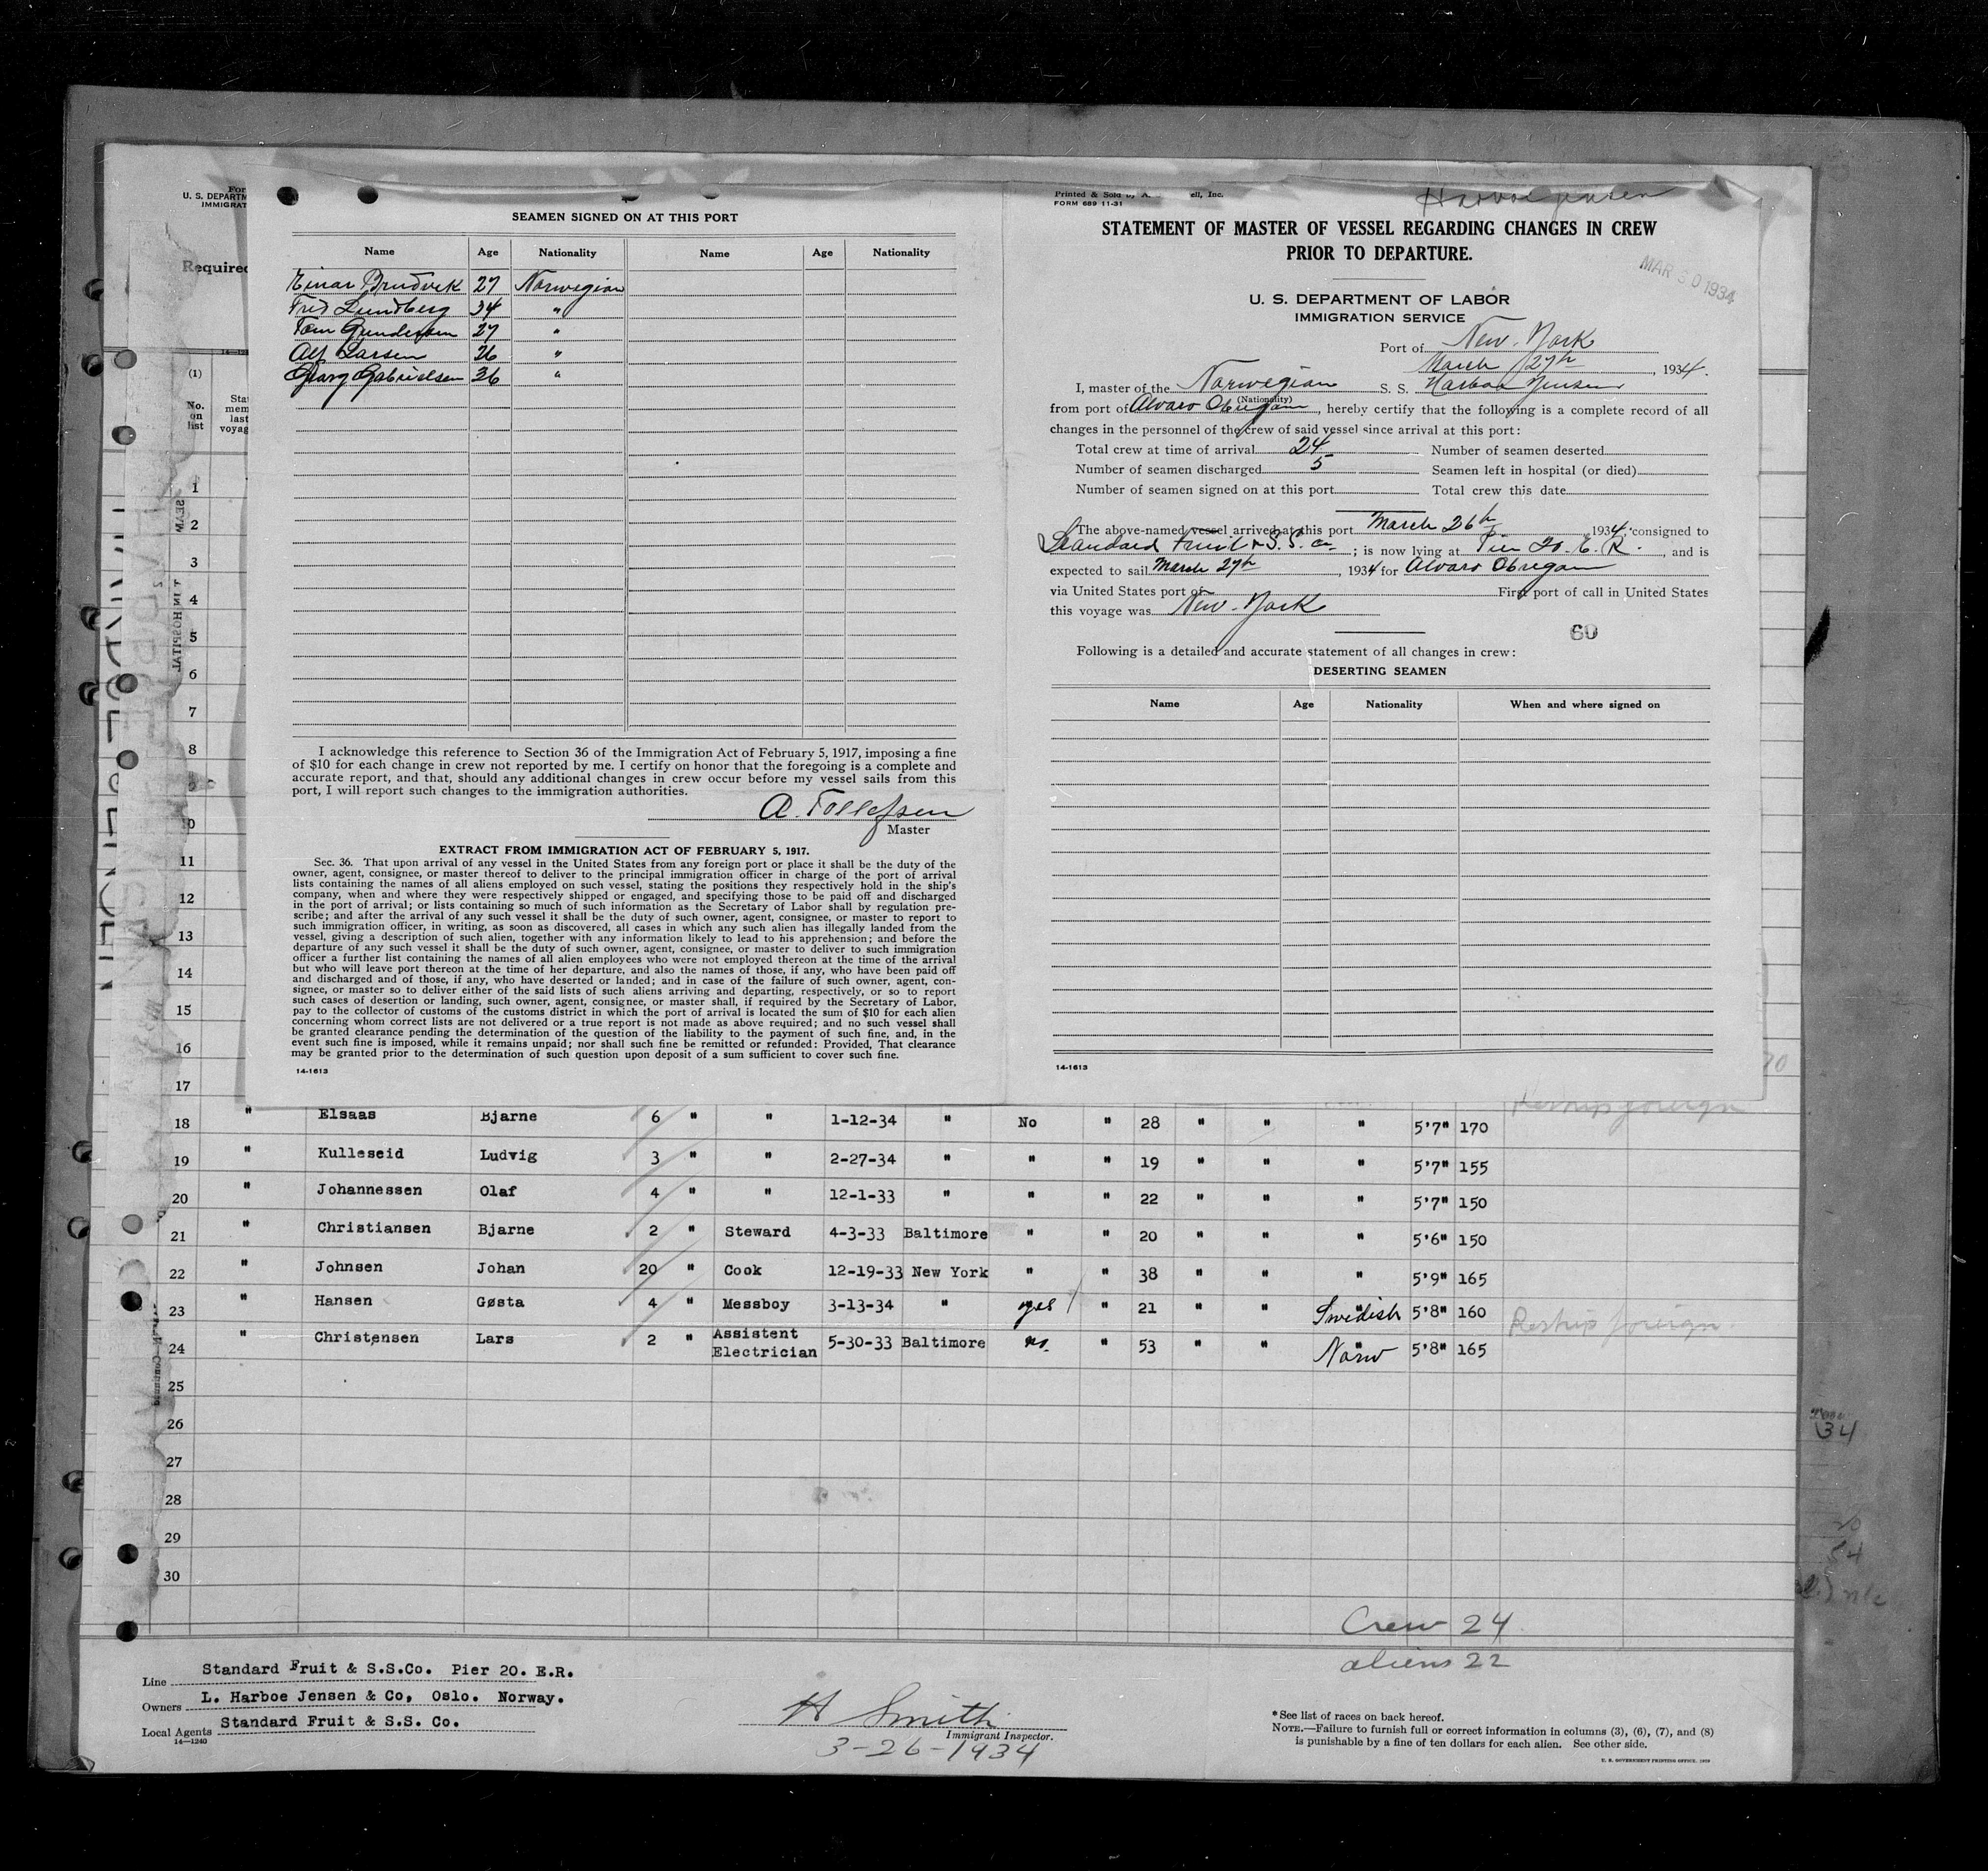 For
U. S. DEPARTM
IMMIGRAT
Required
14—124
(1)
No. on list
Stat
mem
last
voyag
SEAMEN SIGNED ON AT THIS PORT
Name Age Nationality Name Age Nationality
Einar Brudvik 27 Norwegian
Fred Lundberg 34 "
Tom Gundersen 27 "
Alf Larsen 26 "
Georg Gabrielsen 36 "
I acknowledge this reference to Section 36 of the Immigration Act of February 5, 1917, imposing a fine
of $10 for each change in crew not reported by me. I certify on honor that the foregoing is a complete and
accurate report, and that, should any additional changes in crew occur before my vessel sails from this
port, I will report such changes to the immigration authorities.
A. Tollefsen
Master
EXTRACT FROM IMMIGRATION ACT OF FEBRUARY 5, 1917.
Sec. 36. That upon arrival of any vessel in the United States from any foreign port or place it shall be the duty of the
owner, agent, consignee, or master thereof to deliver to the principal immigration officer in charge of the port of arrival
lists containing the names of all aliens employed on such vessel, stating the positions they respectively hold in the ship's
company, when and where they were respectively shipped or engaged, and specifying those to be paid off and discharged
in the port of arrival; or lists containing so much of such information as the Secretary of Labor shall by regulation pre-
scribe; and after the arrival of any such vessel it shall be the duty of such owner, agent, consignee, or master to report to
such immigration officer, in writing, as soon as discovered, all cases in which any such alien has illegally landed from the
vessel, giving a description of such alien, together with any information likely to lead to his apprehension; and before the
departure of any such vessel it shall be the duty of such owner, agent, consignee, or master to deliver to such immigration
officer a further list containing the names of all alien employees who were not employed thereon at the time of the arrival
but who will leave port thereon at the time of her departure, and also the names of those, if any, who have been paid off
and discharged and of those, if any, who have deserted or landed; and in case of the failure of such owner, agent, con-
signee, or master so to deliver either of the said lists of such aliens arriving and departing, respectively, or so to report
such cases of desertion or landing, such owner, agent, consignee, or master shall, if required by the Secretary of Labor,
pay to the collector of customs of the customs district in which the port of arrival is located the sum of $10 for each alien
concerning whom correct lists are not delivered or a true report is not made as above required; and no such vessel shall
be granted clearance pending the determination of the question of the liability to the payment of such fine, and, in the
event such fine is imposed, while it remains unpaid; nor shall such fine be remitted or refunded: Provided, That clearance
may be granted prior to the determination of such question upon deposit of a sum sufficient to cover such fine.
14-1613
Printed & Sold b, A. ell, Inc.
FORM 689 11-31
Harboe Jensen
STATEMENT OF MASTER OF VESSEL REGARDING CHANGES IN CREW
PRIOR TO DEPARTURE.
MAR 30 1934
U. S. DEPARTMENT OF LABOR
IMMIGRATION SERVICE
Port of New York
March 27th, 1934.
I, master of the Norwegian S. S. Harboe Jensen
(Nationality)
from port of Alvaro Obregon, hereby certify that the following is a complete record of all
changes in the personnel of the crew of said vessel since arrival at this port:
Total crew at time of arrival 24 Number of seamen deserted
Number of seamen discharged 5 Seamen left in hospital (or died)
Number of seamen signed on at this port Total crew this date
The above-named vessel arrived at this port March 26th, 1934, consigned to
Standard Fruit & S.S. Co.; is now lying at Pier 20. E. R., and is
expected to sail March 27th, 1934 for Alvaro Obregon
via United States port of First port of call in United States
this voyage was New York
60
Following is a detailed and accurate statement of all changes in crew:
DESERTING SEAMEN
Name Age Nationality When and where signed on
14-1613
1
2
3
4
5
6
7
8
9
10
11
12
13
14
15
16
17
Reship foreign
18 " Elsaas Bjarne 6 " " 1-12-34 " No " 28 " " " 5'7" 170
19 " Kulleseid Ludvig 3 " " 2-27-34 " " " 19 " " " 5'7" 155
20 " Johannessen Olaf 4 " " 12-1-33 " " " 22 " " " 5'7" 150
21 " Christiansen Bjarne 2 " Steward 4-3-33 Baltimore " " 20 " " " 5'6" 150
22 " Johnsen Johan 20 " Cook 12-19-33 New York " " 38 " " " 5'9" 165
23 " Hansen Gøsta 4 " Messboy 3-13-34 " yes " 21 " " Swedish 5'8" 160 Reship foreign
24 " Christensen Lars 2 " Assistent Electrician 5-30-33 Baltimore no " 53 " " Norw 5'8" 165
25
26
27
28
29
30
34
Crew 24
aliens 22
Line Standard Fruit & S.S.Co. Pier 20. E.R.
Owners L. Harboe Jensen & Co, Oslo. Norway.
Local Agents Standard Fruit & S.S. Co.
14—1240
H Smith
Immigrant Inspector.
3-26-1934
* See list of races on back hereof.
NOTE.—Failure to furnish full or correct information in columns (3), (6), (7), and (8)
is punishable by a fine of ten dollars for each alien. See other side.
U. S. GOVERNMENT PRINTING OFFICE. 1929